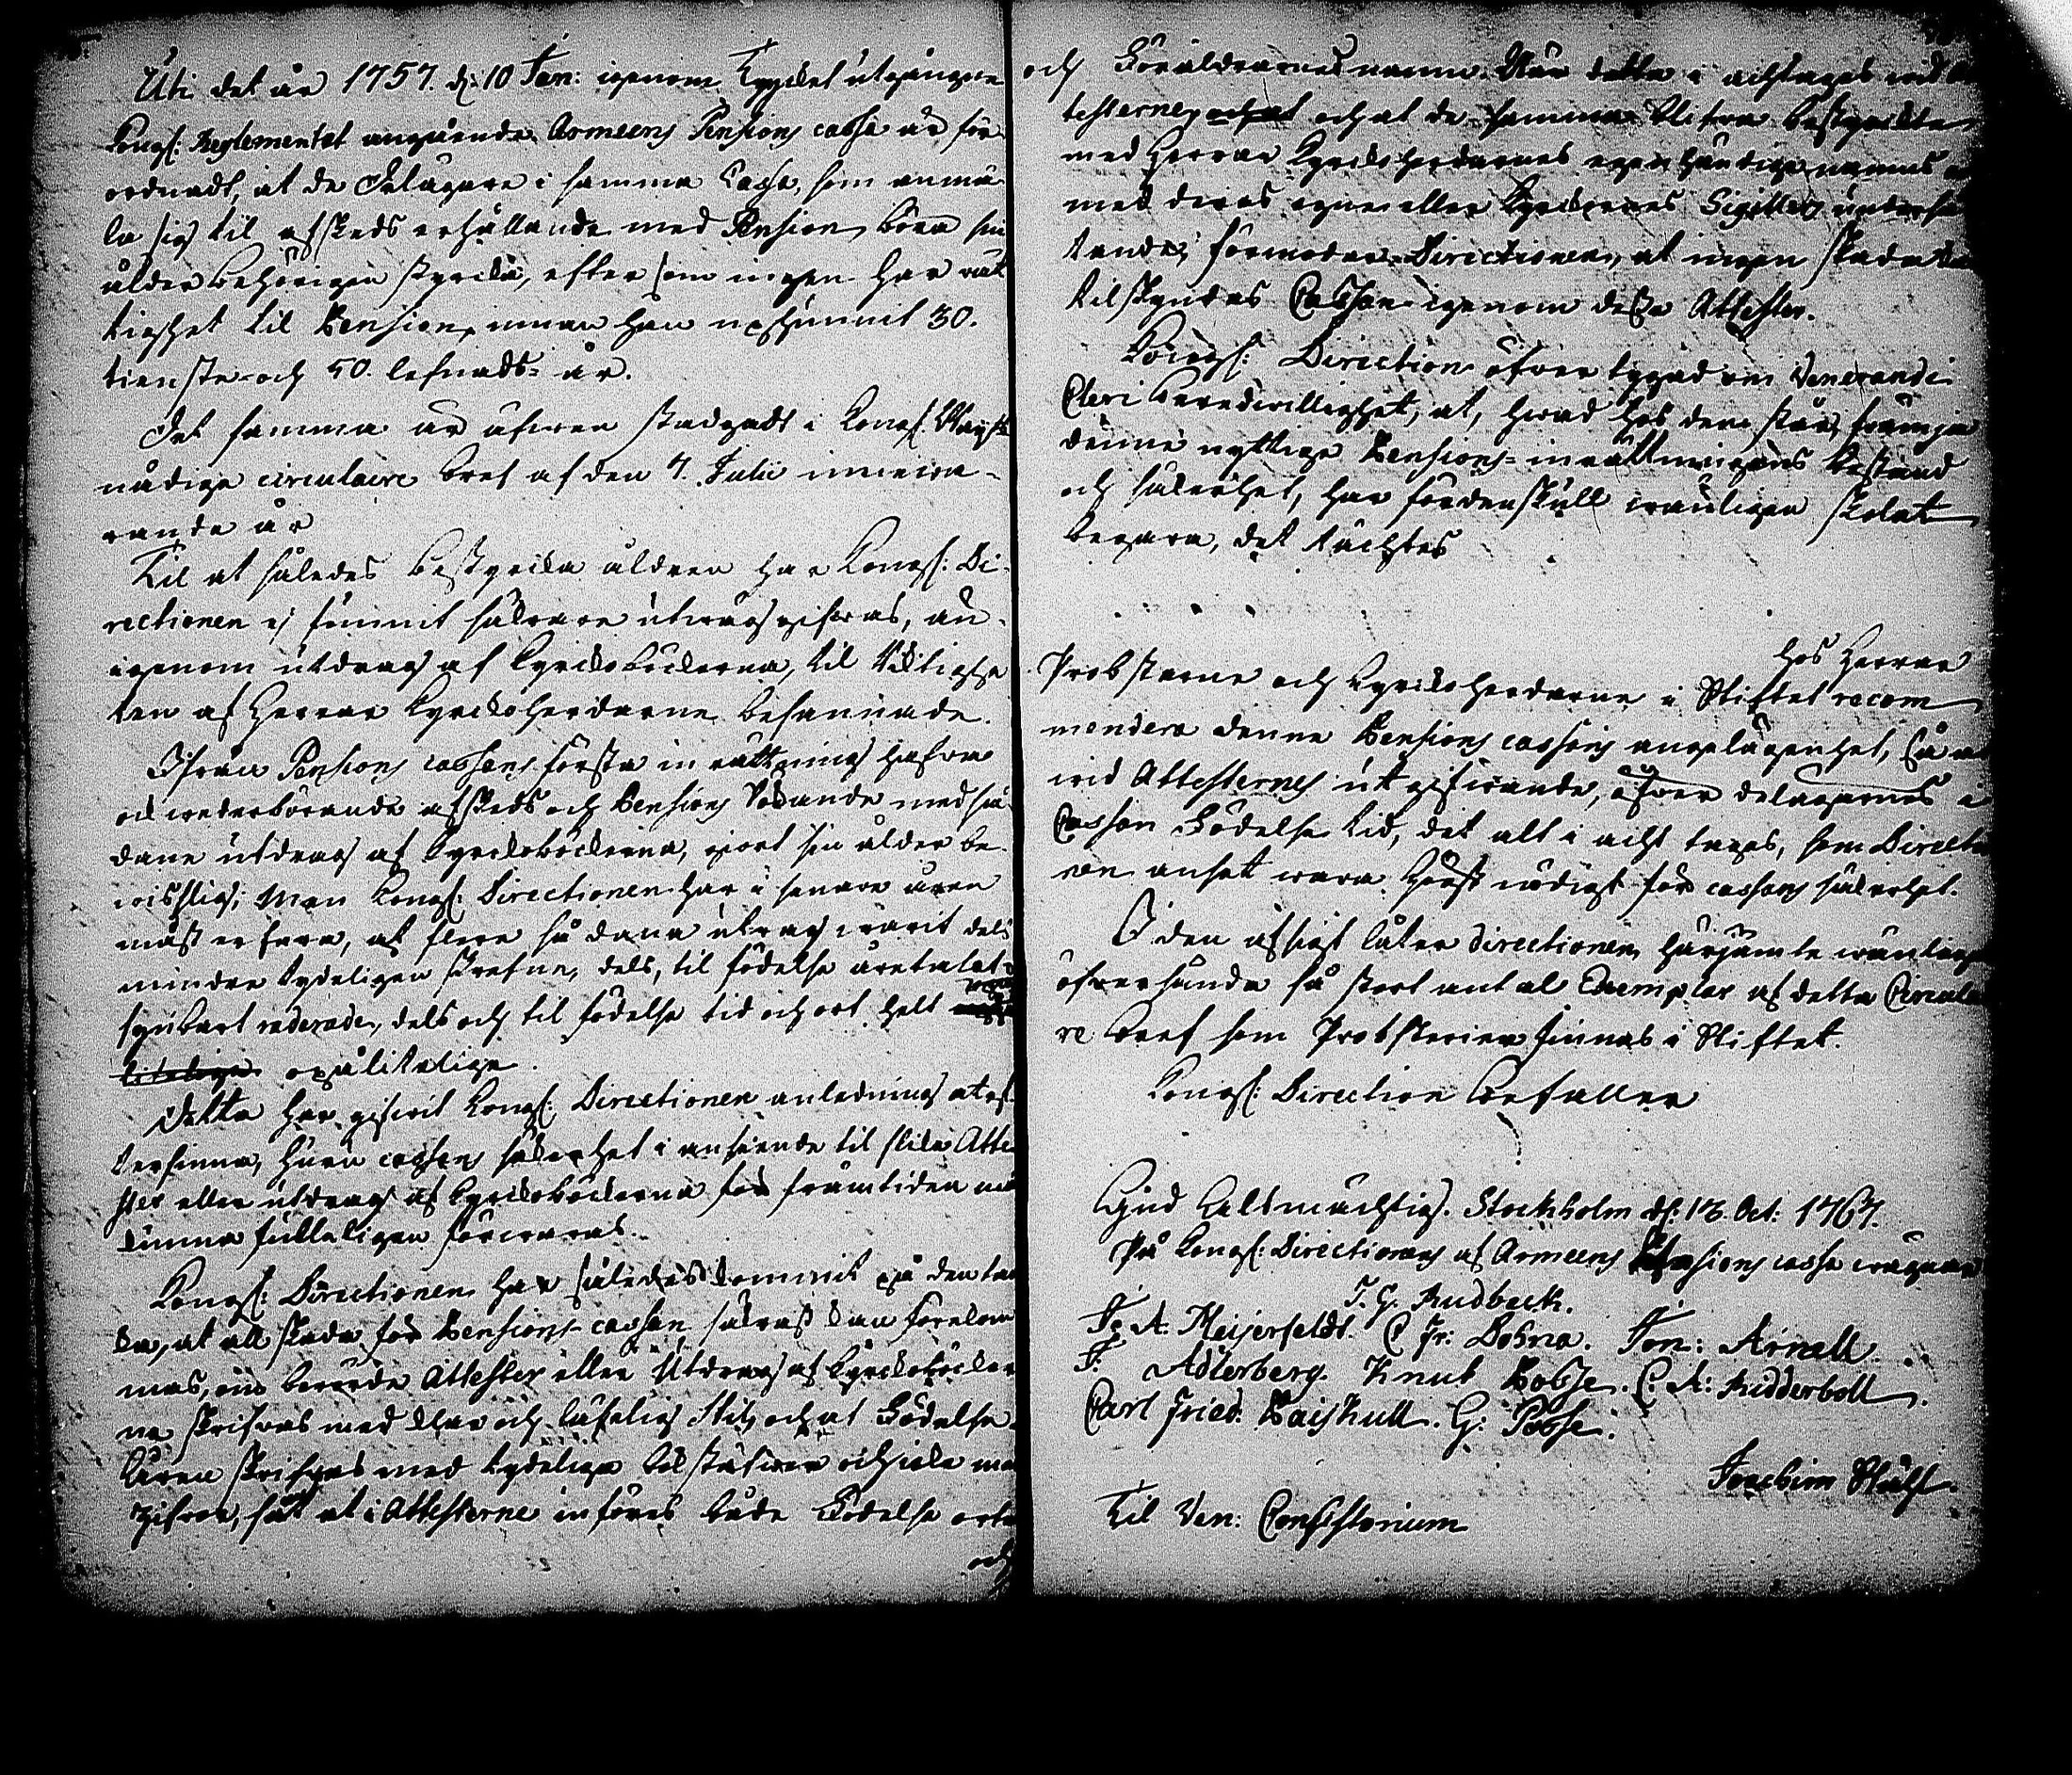 Uti det år 1757. d: 10 Jan: igenom Trycket utgångne
Kongl: Reglementet angående Armeens Pensions cassa är för-
ordnadt, at de Delägare i samma Cassa, som anmä-
la sig til afskeds erhållande med Pension, böra sin
ålder behörigen styrcka, efter som ingen har rät-
tighet til Pension, innan han uphunnit 30.
tienste- och 50. lefnads- år.
Det samma är äfwen stadgadt i Kongl. Maijts
nådige circulaire bref af den 7. Julii inneva-
rande år
Til at således bestyrcka åldren har Kongl: Di-
rectionen ej funnit säkrare utwäg gifwas, än
igenom utdrag af Kyrckoböckerna, til riktighe-
ten af Herrar Kyrckoherdarne besannade.
Ifrån Pensions cassans första inrättning hafwa
ock wederbörande afskeds och Pensions sökande med så-
dane utdrag af Kyrckoböckerna, giort sin ålder be-
wislig; Men Kongl: Directionen har i senare åren
måst erfara, at flere sådana utdrag warit dels
mindre tydeligen skrefne, dels, til födelse åretalet
synbart raderade, dels och til födelse tid och ort helt
opålitelige.
Detta har gifwit Kongl: Directionen anledning at ef-
tersinna, huru cassans säkerhet i anseende til slika Atte-
ster eller utdrag af Kyrckoböckerna för framtiden må
kunna fulleligen förwaras.
Kongl: Directionen har således kommit på den tan-
ka, at all skada för Pensions- cassan säkrast kan förekom-
mas, om berörde Attester eller Utdrag af Kyrckoböcker-
na skrifwas med klar och läselig Stil, och at Födelse-
åren skrifwas med tydelige bokstäfwer och icke med
zifror, samt at i Attesterne införes både Födelse orten
och
och Föräldrarnes namn. När detta i acht tages wid At-
testerne, och at de samma blifwa bestyrckte
med Herrar Kyrckoherdarnes egenhändige namns
med deras egne eller Kyrckornes Sigiller undersät-
tande; förmodar Directionen, at ingen skada kan
tilskyndas Cassan igenom desse Attester.
Kongl: Direction öfwertygad om Venerandi
Cleri benedwillighet, at, hwad hos dem står, främja
denne nyttige Pensions- inrättningens bestånd
och säkerhet, har fördenskull wänligen skolat
begära, det täcktes
hos Herrar
Probstarne och Kyrckoherdarne i Stiftet recom-
mendera denne Pensions cassans angelägenhet, så at
wid Attesternes utgifwande, öfwer delägarnes i
Cassan Födelse tid, det alt i acht tages, som Directio-
nen ansett wara högst nödigt för cassans säkerhet.
I den afsigt låter Directionen härjämte wänligen
öfwersända så stort antal Exemplar af detta Circulai-
re bref som Probsterier finnas i Stiftet.
Kongl: Direction befaller
Gud Allsmächtig. Stockholm d: 13. Oct: 1767.
På Kongl: Directionens af Armeens Pensions cassa wägnar
T. G. Rudbeck.
J. A. Meijerfeldt. C Fr: Dohna. Jon: Arnell.
F. Adlerberg. Knut Posse. C. A: Ridderboll.
Carl Fried. Paijkull. G: Posse.
Joachim
Til Ven: Consistorium